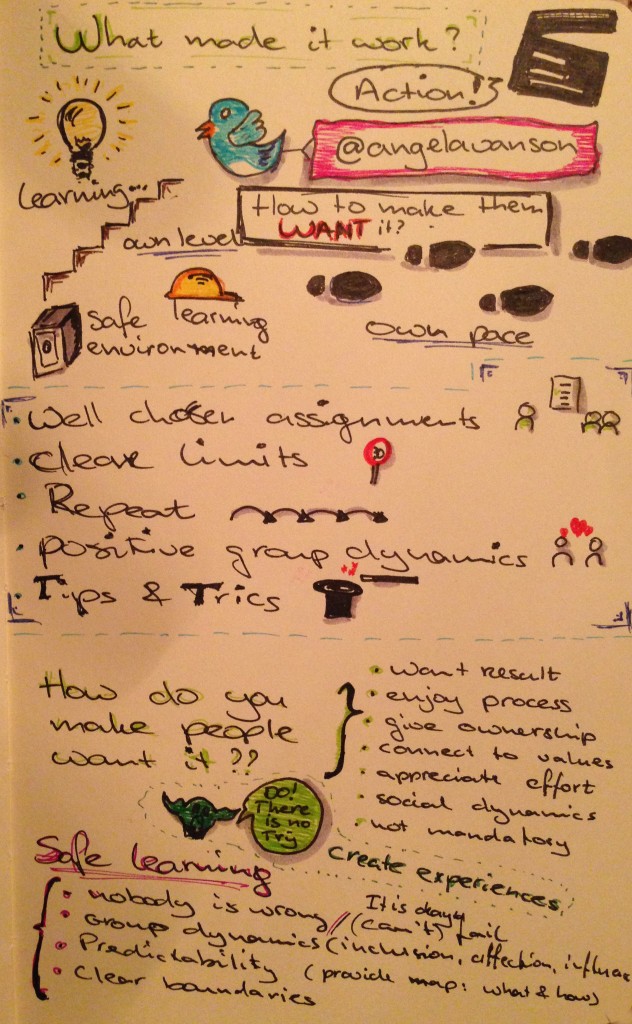 What made it work?
Action!
@angelawanson
learning...
How to make them
WANT it?
own level
safe learning
environment
own pace
• Well chosen assignments
• cleare limits
30
• Repeat
• positive group dynamics
• Tips & Trics
How do you
make people
want it??
• want result
• enjoy process
• give ownership
• connect to values
• appreciate effort
• social dynamics
• not mandatory
Do!
There
is no
Try
create experiences
Safe learning
• nobody is wrong // It is okay
(can't) fail
• Group dynamics (inclusion, affection, influence
• Predictability (provide map: what & how)
• Clear boundaries